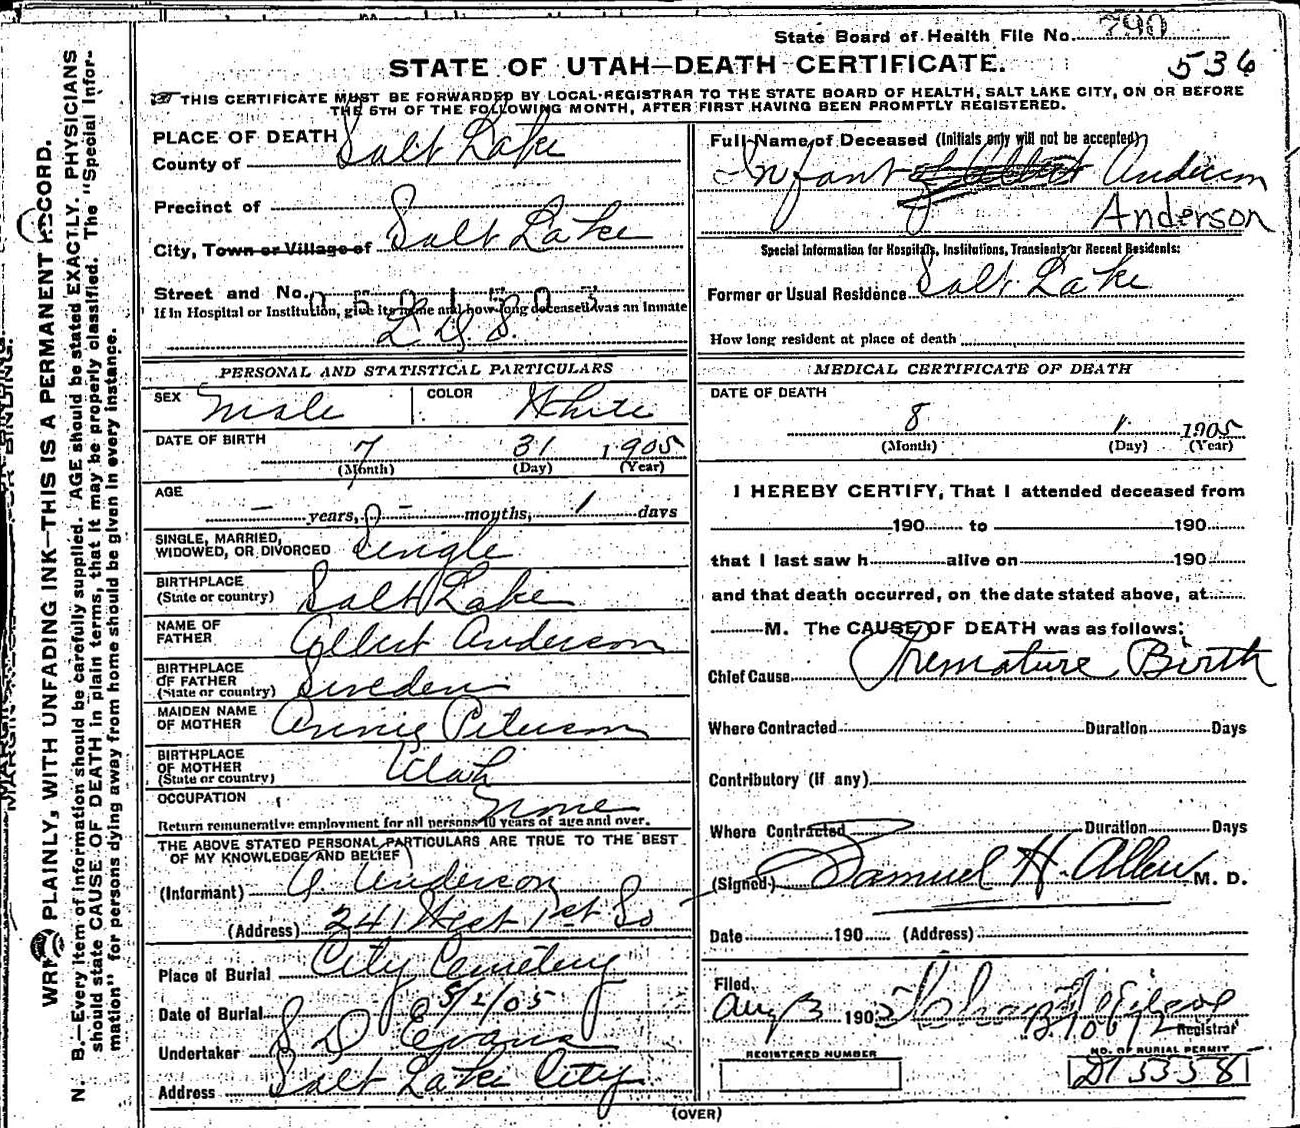 State Board of Health File No. 790
536
STATE OF UTAH—DEATH CERTIFICATE.
THIS CERTIFICATE MUST BE FORWARDED BY LOCAL REGISTRAR TO THE STATE BOARD OF HEALTH, SALT LAKE CITY, ON OR BEFORE
THE 5TH OF THE FOLLOWING MONTH, AFTER FIRST HAVING BEEN PROMPTLY REGISTERED.
PLACE OF DEATH
County of Salt Lake
Precinct of
City, Town or Village of Salt Lake
Street and No.
If in Hospital or Institution, give its name and how long deceased was an Inmate
L D S.
PERSONAL AND STATISTICAL PARTICULARS
SEX Male COLOR White
DATE OF BIRTH 7 31 1905
(Month) (Day) (Year)
AGE
- years, - months, 1 days
SINGLE, MARRIED,
WIDOWED, OR DIVORCED Single
BIRTHPLACE
(State or country) Salt Lake
NAME OF
FATHER Albert Anderson
BIRTHPLACE
OF FATHER
(State or country) Sweden
MAIDEN NAME
OF MOTHER Annie Peterson
BIRTHPLACE
OF MOTHER
(State or country) Utah
OCCUPATION None
Return remunerative employment for all persons 10 years of age and over.
THE ABOVE STATED PERSONAL PARTICULARS ARE TRUE TO THE BEST
OF MY KNOWLEDGE AND BELIEF
(Informant) A. Anderson
(Address) 241 West 1st So
Place of Burial City Cemetery
Date of Burial 8/2/05
Undertaker S D Evans
Address Salt Lake City
Full Name of Deceased (Initials only will not be accepted)
Infant of Albert Anderson
Anderson
Special Information for Hospitals, Institutions, Transients or Recent Residents:
Former or Usual Residence Salt Lake
How long resident at place of death
MEDICAL CERTIFICATE OF DEATH
DATE OF DEATH
8 1 1905
(Month) (Day) (Year)
I HEREBY CERTIFY, That I attended deceased from
190 to 190
that I last saw h alive on 190
and that death occurred, on the date stated above, at
M. The CAUSE OF DEATH was as follows:
Chief Cause Premature Birth
Where Contracted Duration Days
Contributory (if any)
Where Contracted Duration Days
(Signed) Samuel H. Allen M. D.
Date 190 (Address)
Filed
Aug 3 1905
Registrar
REGISTERED NUMBER
NO. OF BURIAL PERMIT
D13358
(OVER)
WRITE PLAINLY, WITH UNFADING INK—THIS IS A PERMANENT RECORD.
N. B.—Every item of information should be carefully supplied. AGE should be stated EXACTLY. PHYSICIANS
should state CAUSE OF DEATH in plain terms, that it may be properly classified. The "Special Infor-
mation" for persons dying away from home should be given in every instance.